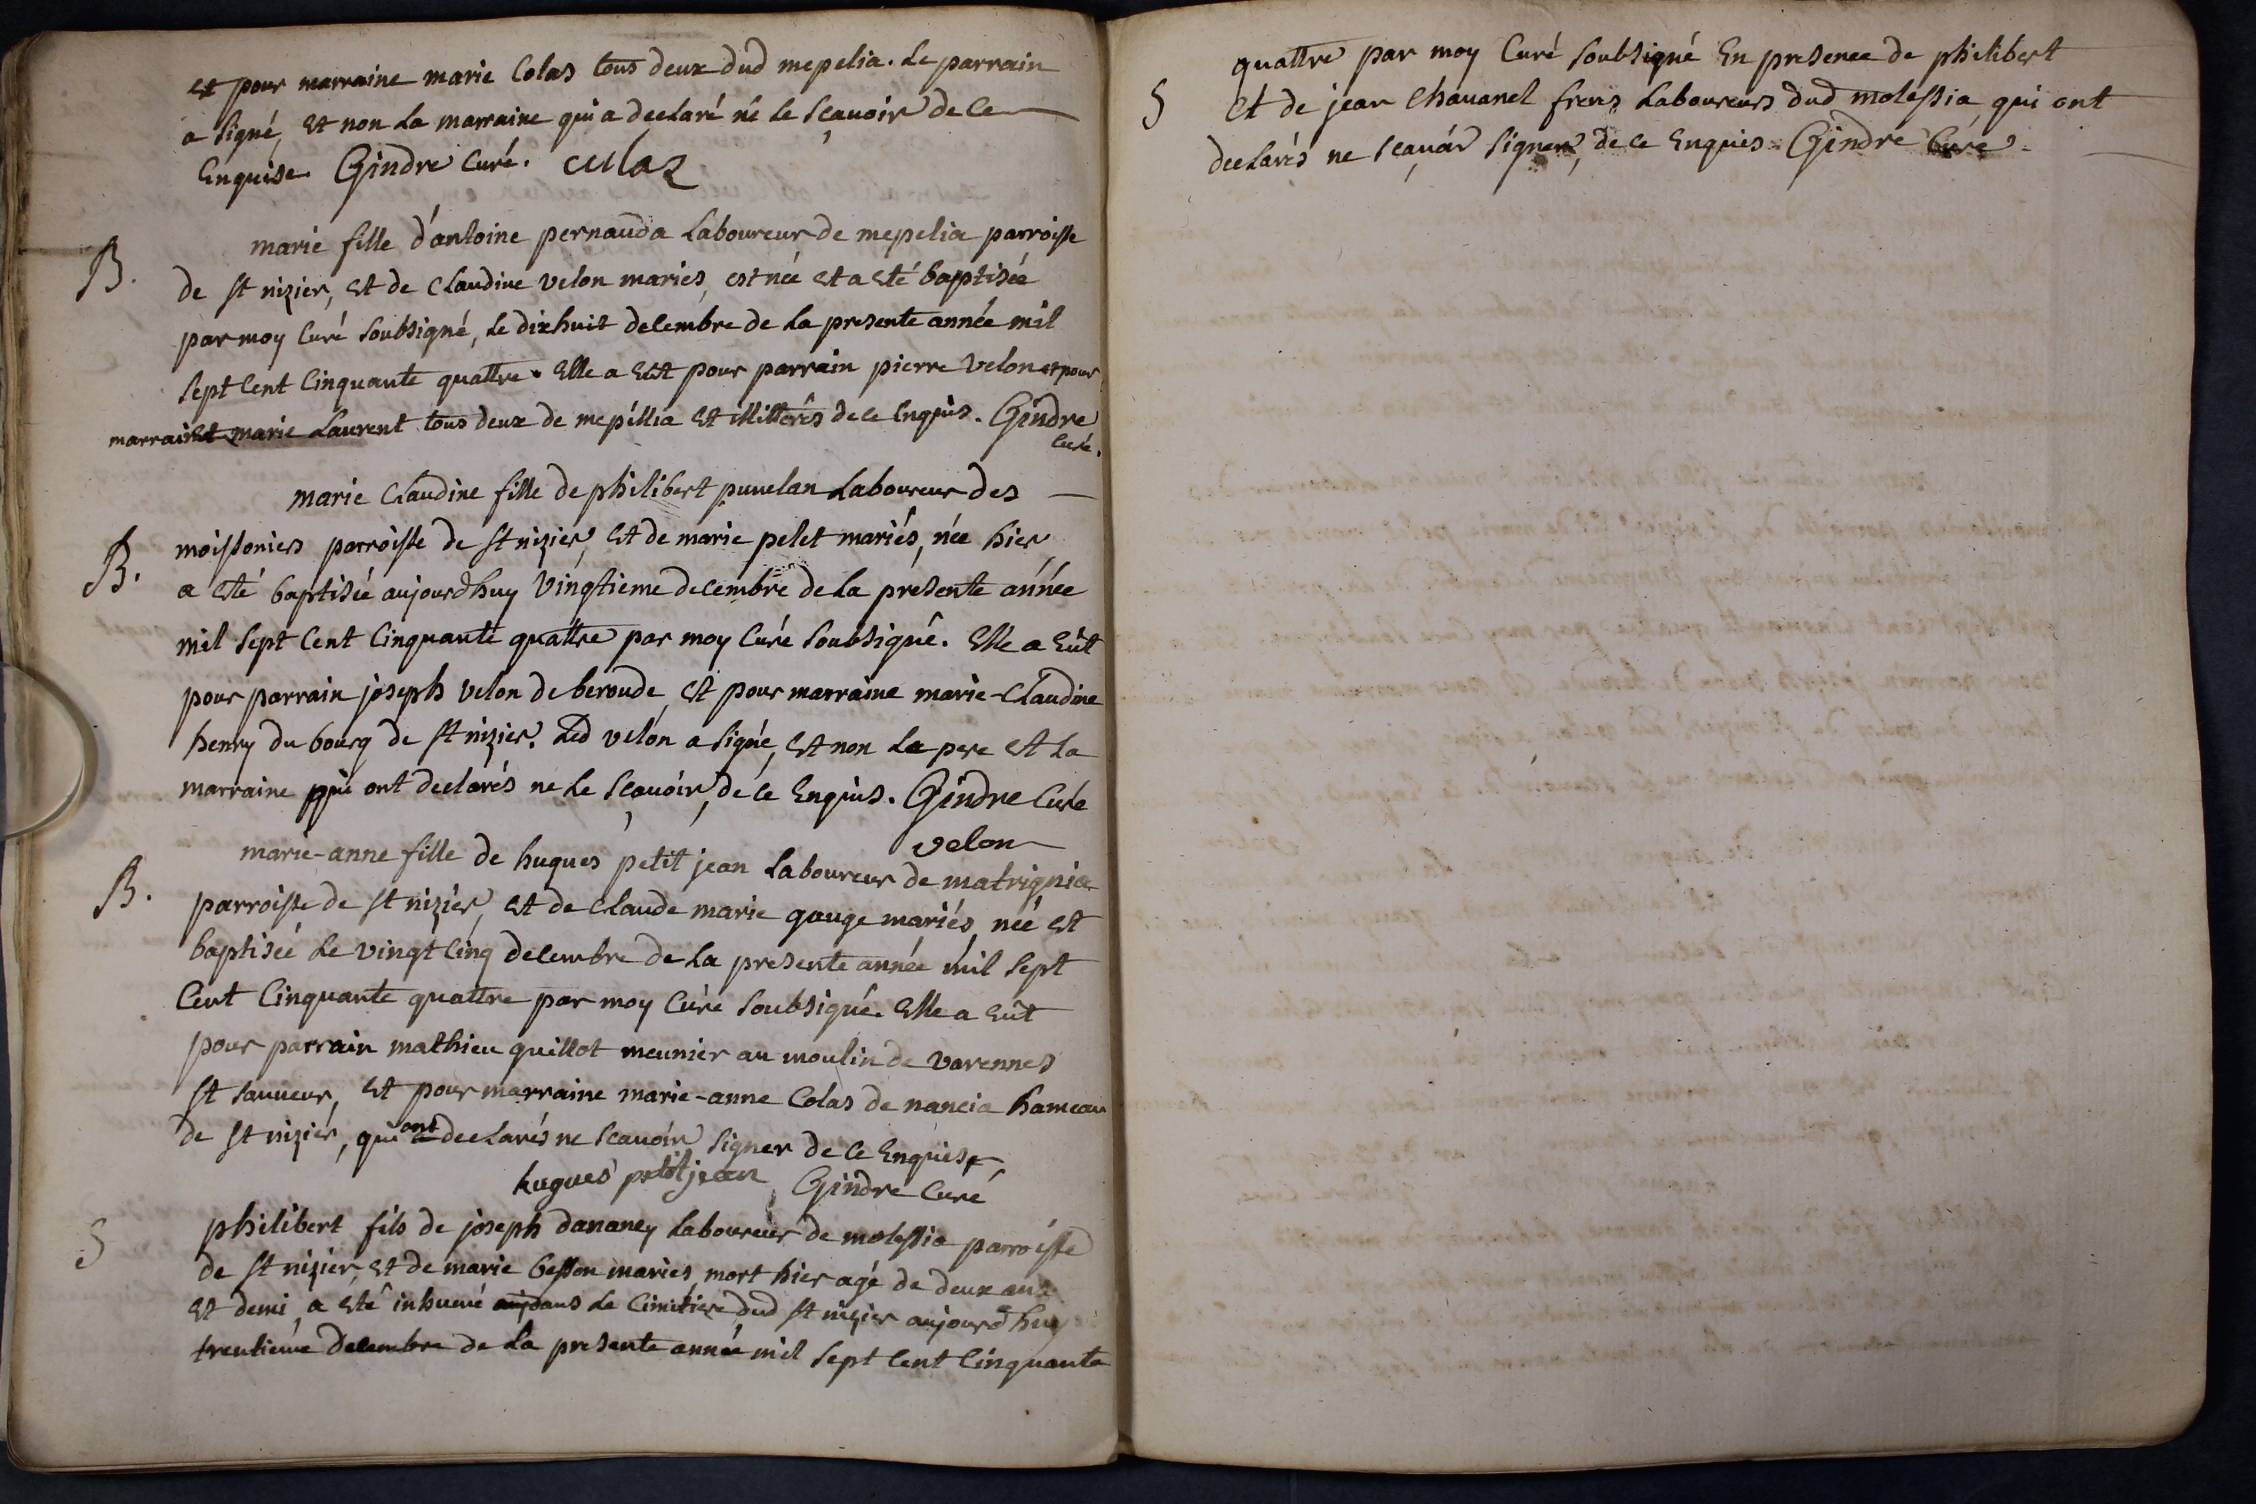 et pour marraine marie Colas tous deux dud mepelia. Le parrain
a signé, et non La marraine qui a declaré né le sçauoir de ce
Enquise. Gindre Curé.
B. marie fille d'antoine pernauda Laboureur de mepelia parroisse
de st nizier, et de Claudine velon mariés, est née et a eté baptisée
par moy Curé soubsigné, Le dixhuit decembre de La presente année mil
sept Cent Cinquante quattre. Elle a eut pour parrain pierre velon et pour
marraine marie Laurent tous deux de mepillia et illitterés de ce Enquis. Gindre
Curé.
marie Claudine fille de philibert Laboureur des
B. moissoniers parroisse de st nizier, et de marie pelet mariés, née hier
a eté baptisée aujourdhuy vingtieme decembre de La presente année
mil sept Cent Cinquante quattre par moy Curé soubsigné. Elle a Eût
pour parrain joseph velon de beroude, et pour marraine marie-Claudine
henry du bourg de st nizier. Led velon a signé, et non Le pere et La
marraine qui ont declarés ne Le sçauoir, de ce Enquis. Gindre Curé
velon
marie-anne fille de hugues petit jean Laboureur de matrignia
B. parroisse de st nizier, et de Claude marie gauge mariés, née et
baptisée Le vingt Cinq decembre de La presente année mil sept
Cent Cinquante quattre par moy Curé soubsigné. Elle a Eût
pour parrain mathieu guillot meunier au moulin de varennes
st sauueur, et pour marraine marie-anne Colas de nancia hameau
de st nizier, qui ont declarés ne scauoir signer de ce Enquis.
hugues petitjean Gindre Curé
S philibert fils de joseph dananey Laboureur de molessia parroisse
de st nizier, et de marie besson mariés, mort hier agé de deux ans
et demi, a eté inhumé dans Le Cimitiere dud st nizier aujourdhuy
trentieme decembre de La presente année mil sept Cent Cinquante
quattre par moy Curé soubsigné En presence de philibert
S et de jean Chauanel freres Laboureurs dud molessia, qui ont
declarés ne sçauoir signer, de ce Enquis. Gindre Curé.